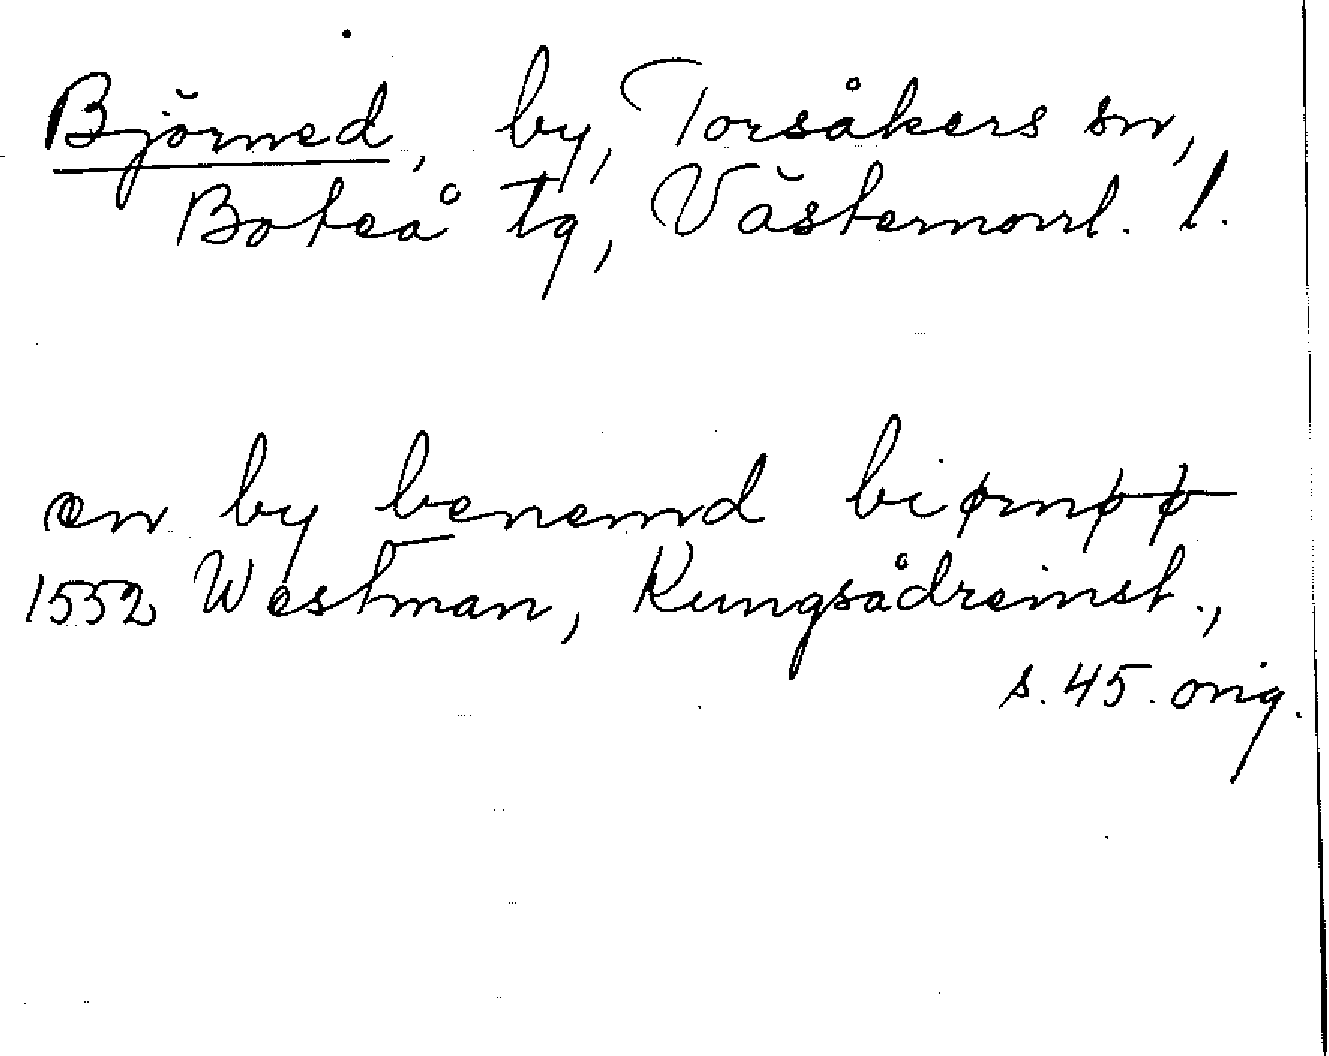 Björned, by, Torsåkers sn,
Boteå tg, Västernorrl. l.
en by benemd biørnøø
1552 Westman, Kungsådreinst.,
s. 45. orig.